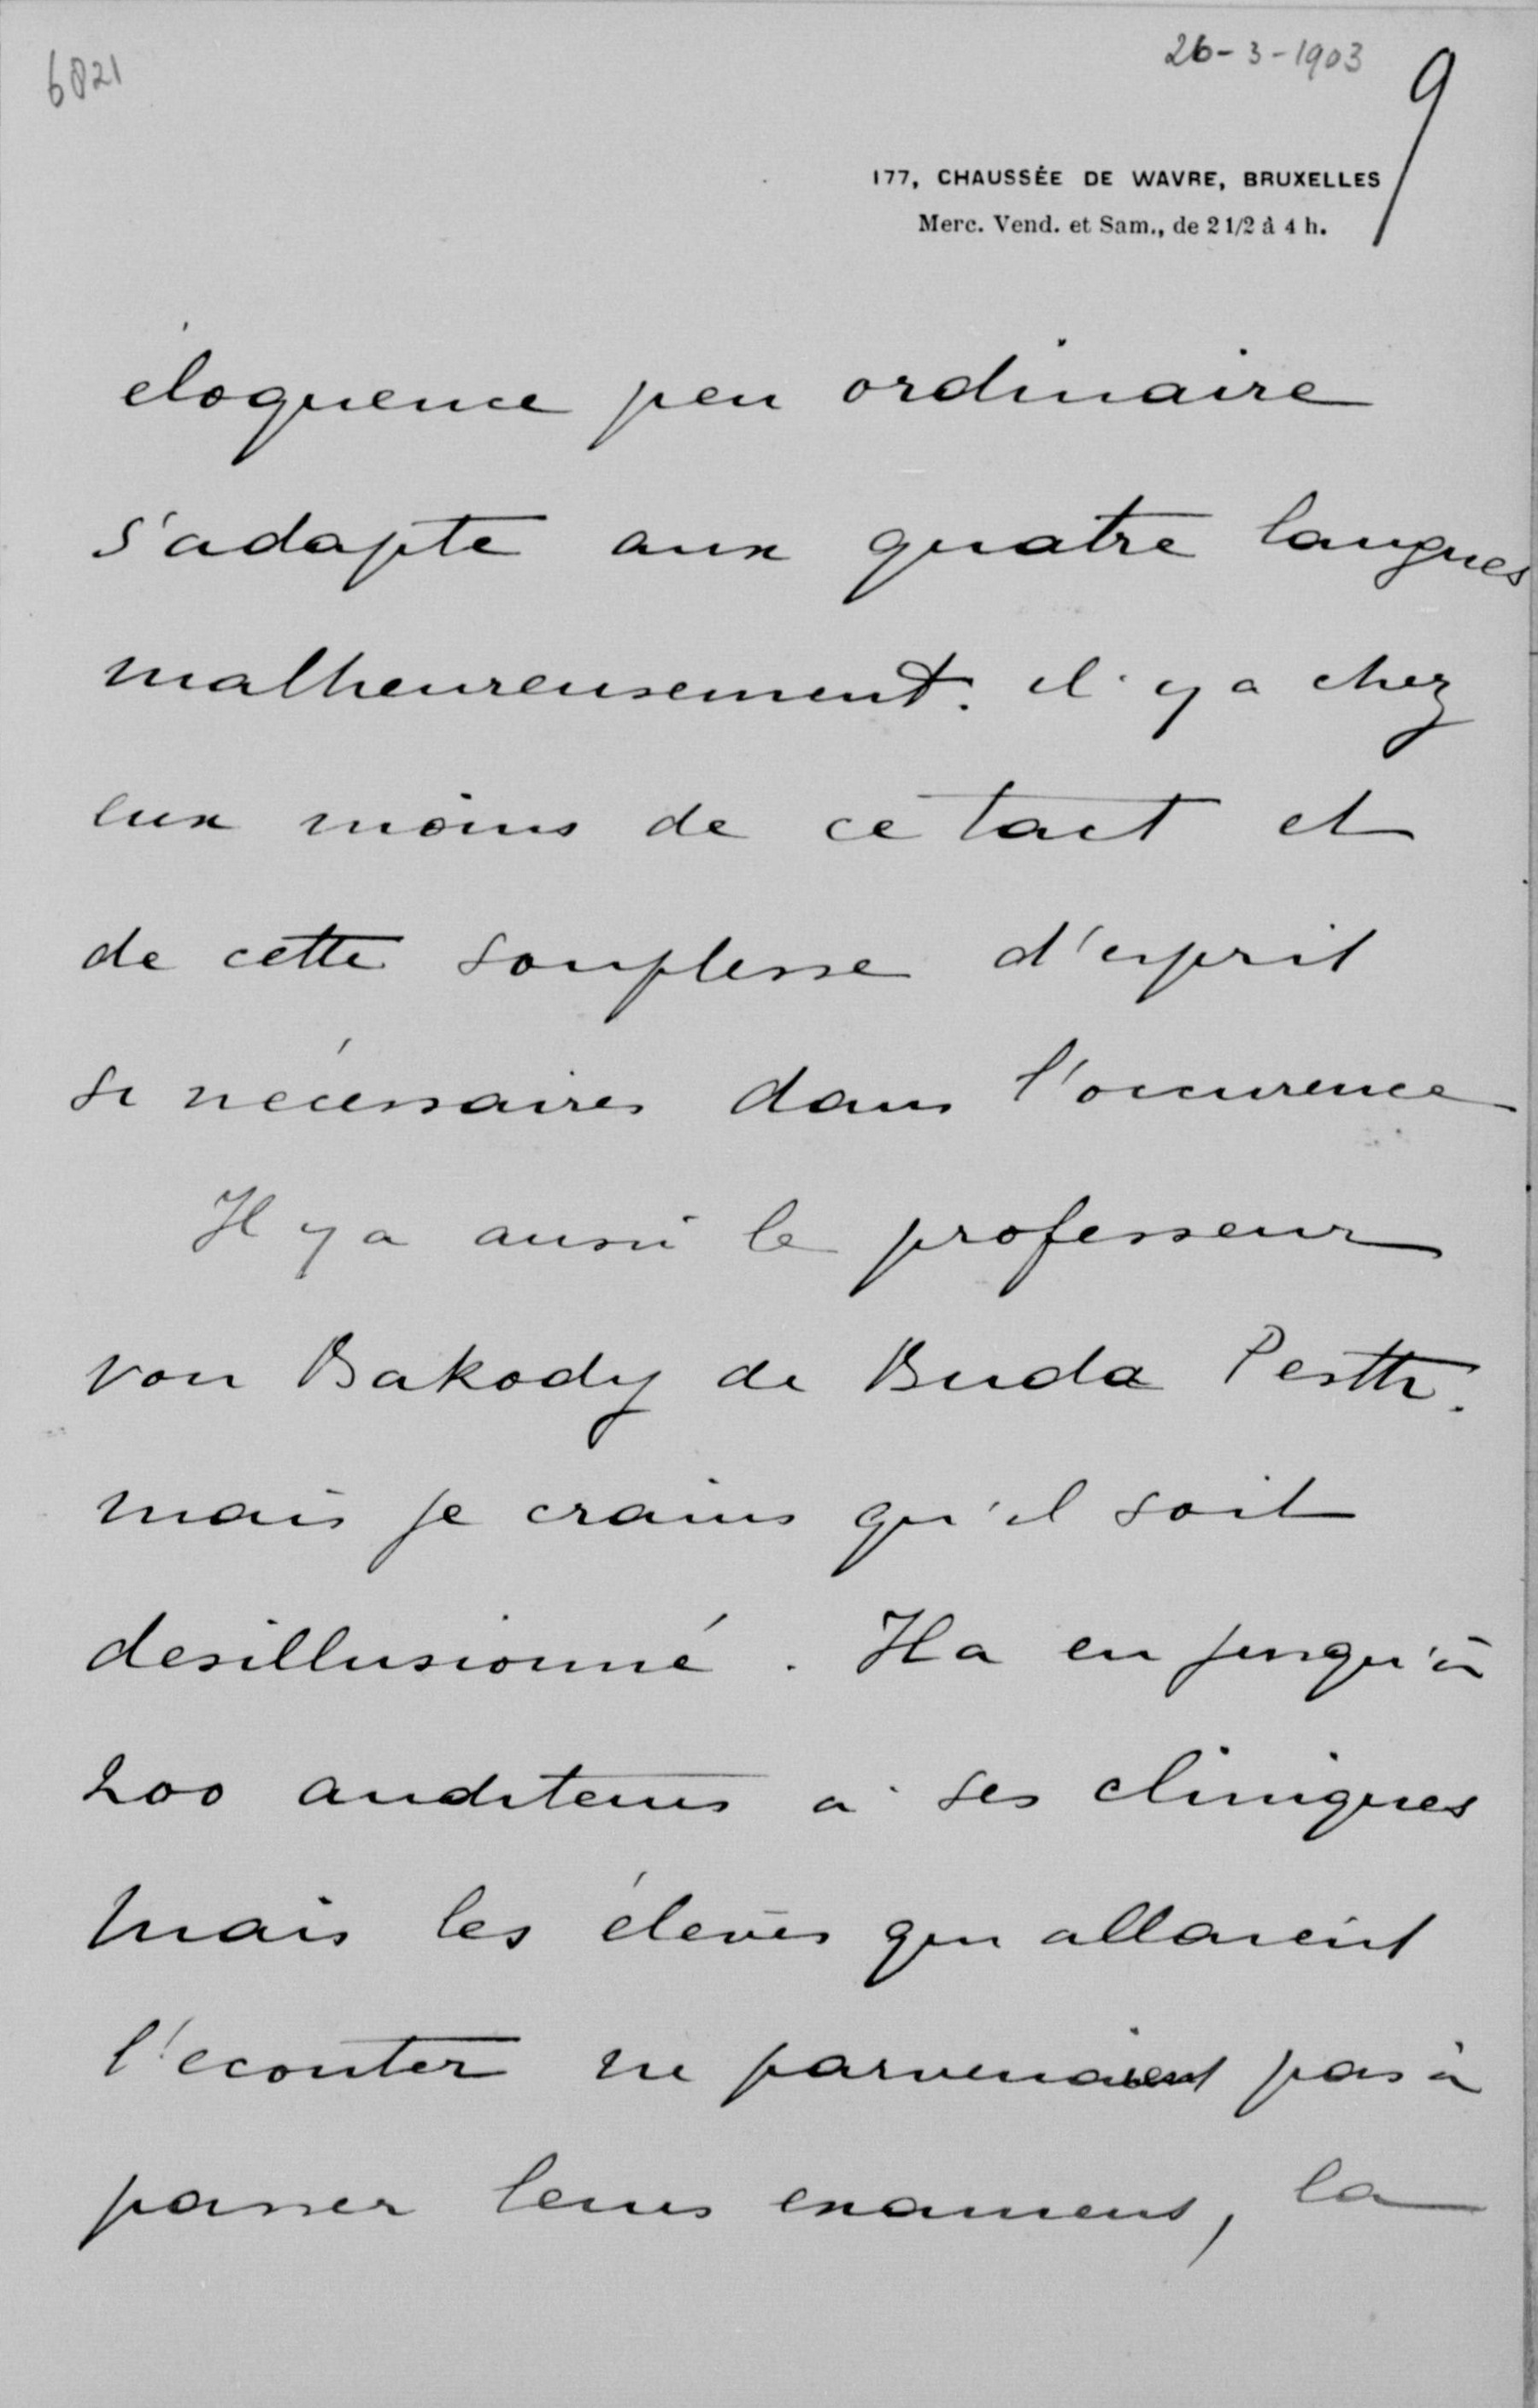 6821
26-3-1903
9
177, CHAUSSÉE DE WAVRE, BRUXELLES
Merc. Vend. et Sam., de 2 1/2 à 4 h.
éloquence peu ordinaire
s'adapte aux quatre langues
malheureusement. il y a chez
eux moins de ce tact et
de cette souplesse d'esprit
si nécessaires dans l'occurence
Il y a aussi le professeur
von Bakody de Buda Pesth.
mais je crains qu'il soit
desillusionné. Il a eu jusqu'à
200 auditeurs à ses cliniques
mais les élèves qui allaient
l'ecouter ne parvenaient pas à
passer leurs examens, la